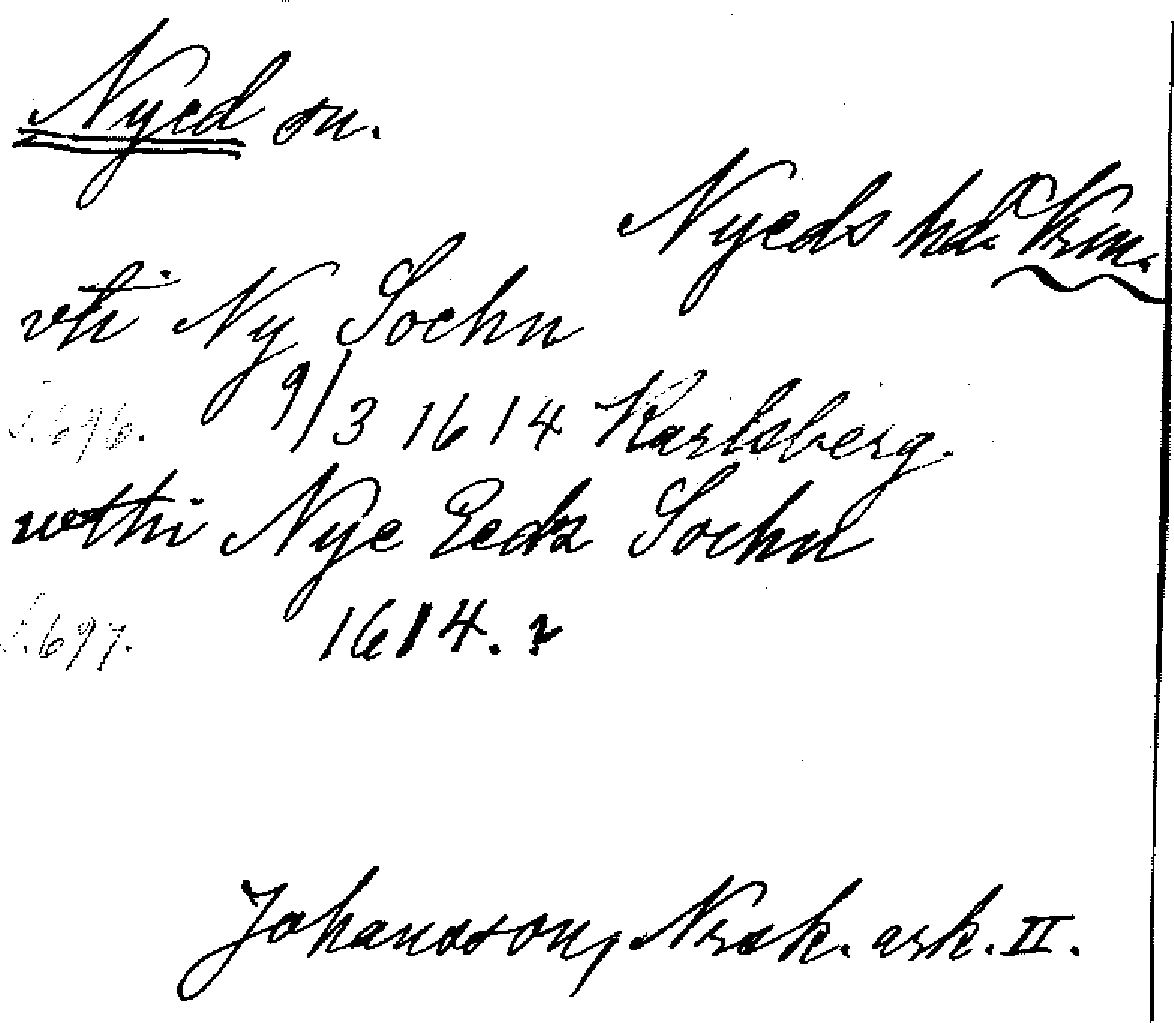 Nyed sn.
Nyeds hd. Vrm.
vti Ny Sochn
s. 696. 9/3 1614 Karlsberg.
wthi Nye Eedz Sochn
s. 697. 1614.
Johansson, Norsk. ark. II.